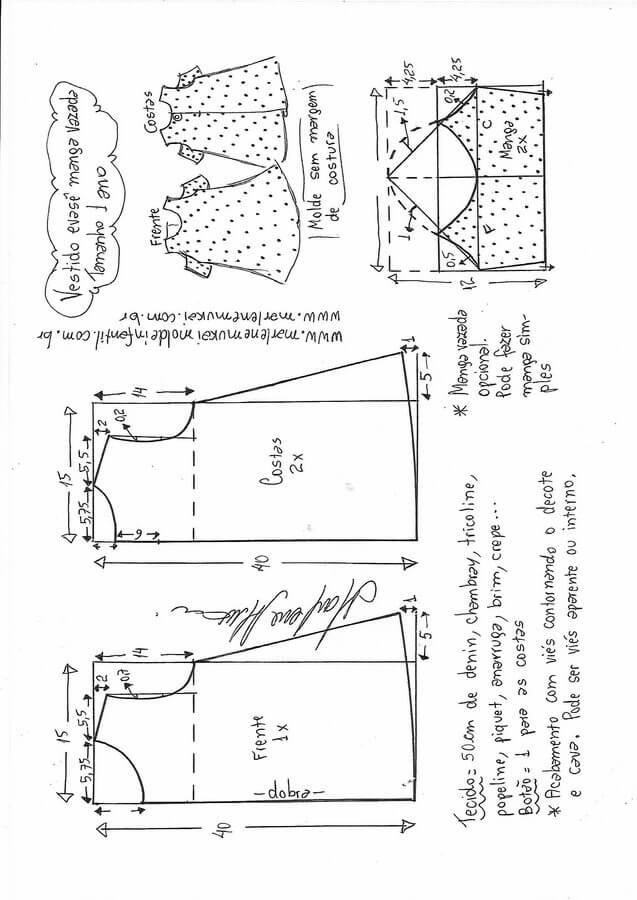 Vestido evasê manga vazada
Tamanho 1 ano
Costas
Frente
Molde sem margem
de costura
4,25
4,25
0,2
1,5
1
0,5
12
C
F
Manga
2x
www.marlenemukai.com.br
www.marlenemukaimoldeinfantil.com.br
* Manga vazada
opcional.
Pode fazer
manga sim-
ples
15
5,75
5,5
2
14
0,2
6
Costas
2x
40
1
5
15
5,75
5,5
2
14
Frente
1x
-dobra-
40
1
5
Tecido = 50cm de denin, chambray, tricoline,
popeline, piquet, anarruga, brim, crepe...
Botão = 1 para as costas
* Acabamento com viés contornando o decote
e cava. Pode ser viés aparente ou interno.